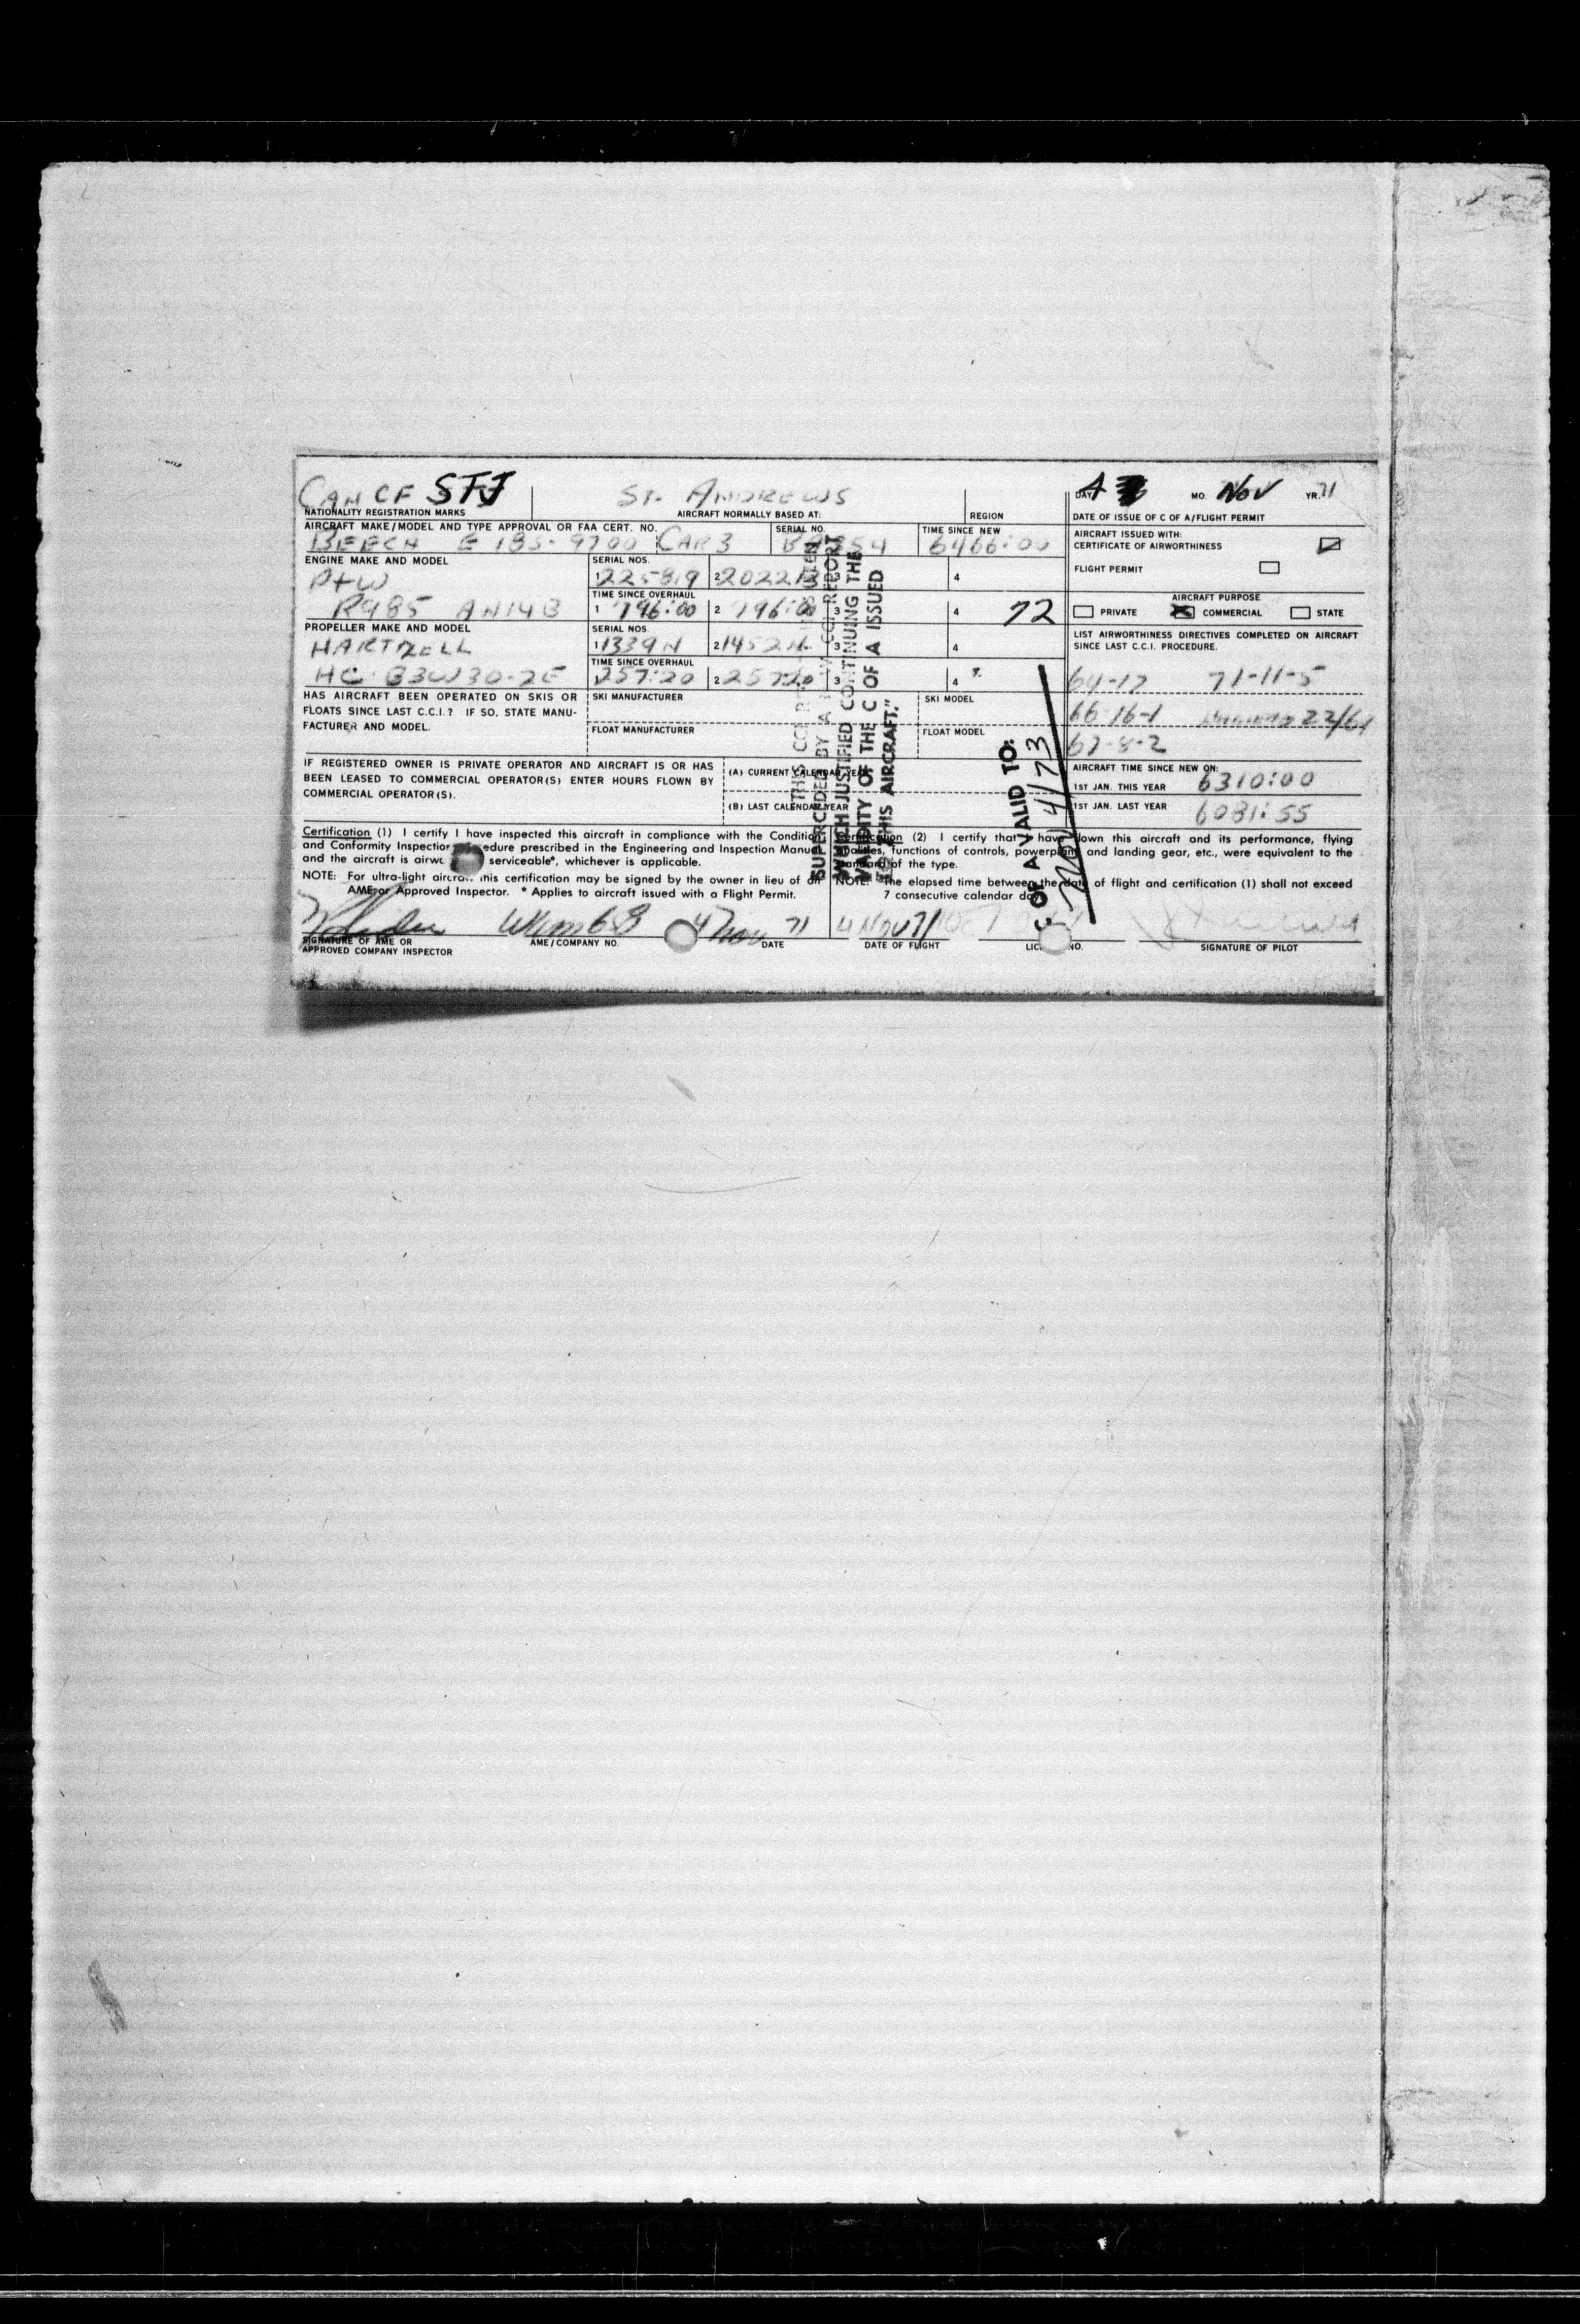 CAN CF STJ ST. ANDREWS DAY 4 MO. NOV YR. 71
NATIONALITY REGISTRATION MARKS AIRCRAFT NORMALLY BASED AT: REGION DATE OF ISSUE OF C OF A/FLIGHT PERMIT
AIRCRAFT MAKE/MODEL AND TYPE APPROVAL OR FAA CERT. NO. SERIAL NO. TIME SINCE NEW
BEECH E 18S-9700 CAR 3 6466:00
AIRCRAFT ISSUED WITH:
CERTIFICATE OF AIRWORTHINESS
FLIGHT PERMIT
AIRCRAFT PURPOSE
PRIVATE COMMERCIAL STATE
ENGINE MAKE AND MODEL SERIAL NOS.
P+W 1 225819 2 3 4
TIME SINCE OVERHAUL
R985 AN14B 1 796:00 2 796:00 3 4 72
PROPELLER MAKE AND MODEL SERIAL NOS.
HARTZELL 1 1339N 2 1452N 3 4
TIME SINCE OVERHAUL
HC-B3W30-2E 1 257:20 2 257:20 3 4
LIST AIRWORTHINESS DIRECTIVES COMPLETED ON AIRCRAFT
SINCE LAST C.C.I. PROCEDURE.
64-17 71-11-5
66-16-1 22/61
67-8-2
HAS AIRCRAFT BEEN OPERATED ON SKIS OR
FLOATS SINCE LAST C.C.I.? IF SO, STATE MANU-
FACTURER AND MODEL.
SKI MANUFACTURER SKI MODEL
FLOAT MANUFACTURER FLOAT MODEL
IF REGISTERED OWNER IS PRIVATE OPERATOR AND AIRCRAFT IS OR HAS
BEEN LEASED TO COMMERCIAL OPERATOR(S) ENTER HOURS FLOWN BY
COMMERCIAL OPERATOR(S).
(A) CURRENT CALENDAR YEAR
(B) LAST CALENDAR YEAR
AIRCRAFT TIME SINCE NEW ON:
1ST JAN. THIS YEAR 6310:00
1ST JAN. LAST YEAR 6081:55
THIS CCI
SUPERCEDED BY A CCI REPORT
WHICH JUSTIFIED CONTINUING THE
VALIDITY OF THE C OF A ISSUED
TO THIS AIRCRAFT."
C OF A VALID TO:
NOV 4/73
Certification (1) I certify I have inspected this aircraft in compliance with the Condition
and Conformity Inspection procedure prescribed in the Engineering and Inspection Manual
and the aircraft is serviceable*, whichever is applicable.
NOTE: For ultra-light aircraft this certification may be signed by the owner in lieu of an
AME or Approved Inspector. * Applies to aircraft issued with a Flight Permit.
Certification (2) I certify that I have flown this aircraft and its performance, flying
qualities, functions of controls, powerplant and landing gear, etc., were equivalent to the
standard of the type.
NOTE: The elapsed time between the date of flight and certification (1) shall not exceed
7 consecutive calendar days.
4 Nov 71 4 NOV 71
SIGNATURE OF AME OR
APPROVED COMPANY INSPECTOR
AME/COMPANY NO. DATE DATE OF FLIGHT NO. SIGNATURE OF PILOT